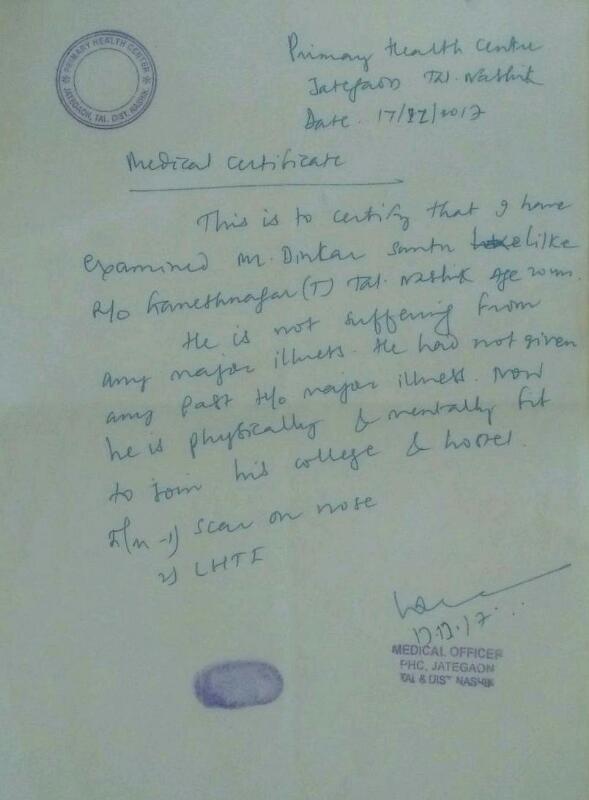 PRIMARY HEALTH CENTER
JATEGAON, TAL. DIST. NASHIK
Primary Health Centre
Jategaon Tal. Nashik
Date. 17/12/2017
Medical Certificate
This is to certify that I have
examined Mr. Dinkar Santu Lilke
R/o Ganeshnagar (T) Tal. Nashik Age 20
He is not suffering from
any major illness. He had not given
any past H/o major illness. Now
he is physically & mentally fit
to join his college & hostel.
1) Scar on nose
2) LHTI
MEDICAL OFFICER
PHC, JATEGAON
TAL & DIST NASHIK